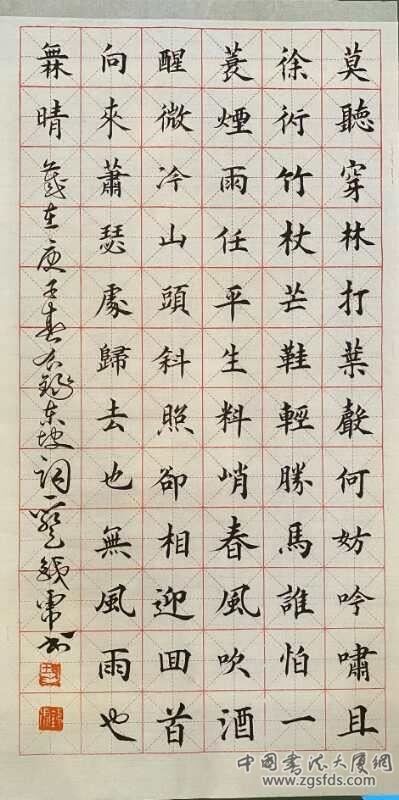 莫聽穿林打葉聲何妨吟嘯且
徐行竹杖芒鞋輕勝馬誰怕一
蓑煙雨任平生料峭春風吹酒
醒微冷山頭斜照卻相迎囬首
向來蕭瑟處歸去也無風雨也
橆晴 歲在庚子春右錄東坡詞一 書
中國書法大厦網
www.zgsfds.com